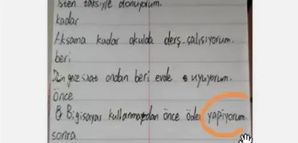 İşten taksiyle dönüyorum.
kadar
Akşama kadar okulda ders çalışıyorum.
beri
Dün gece saat ondan beri evde uyuyorum.
önce
Bilgisayar kullanmadan önce ödev yapıyorum.
sonra